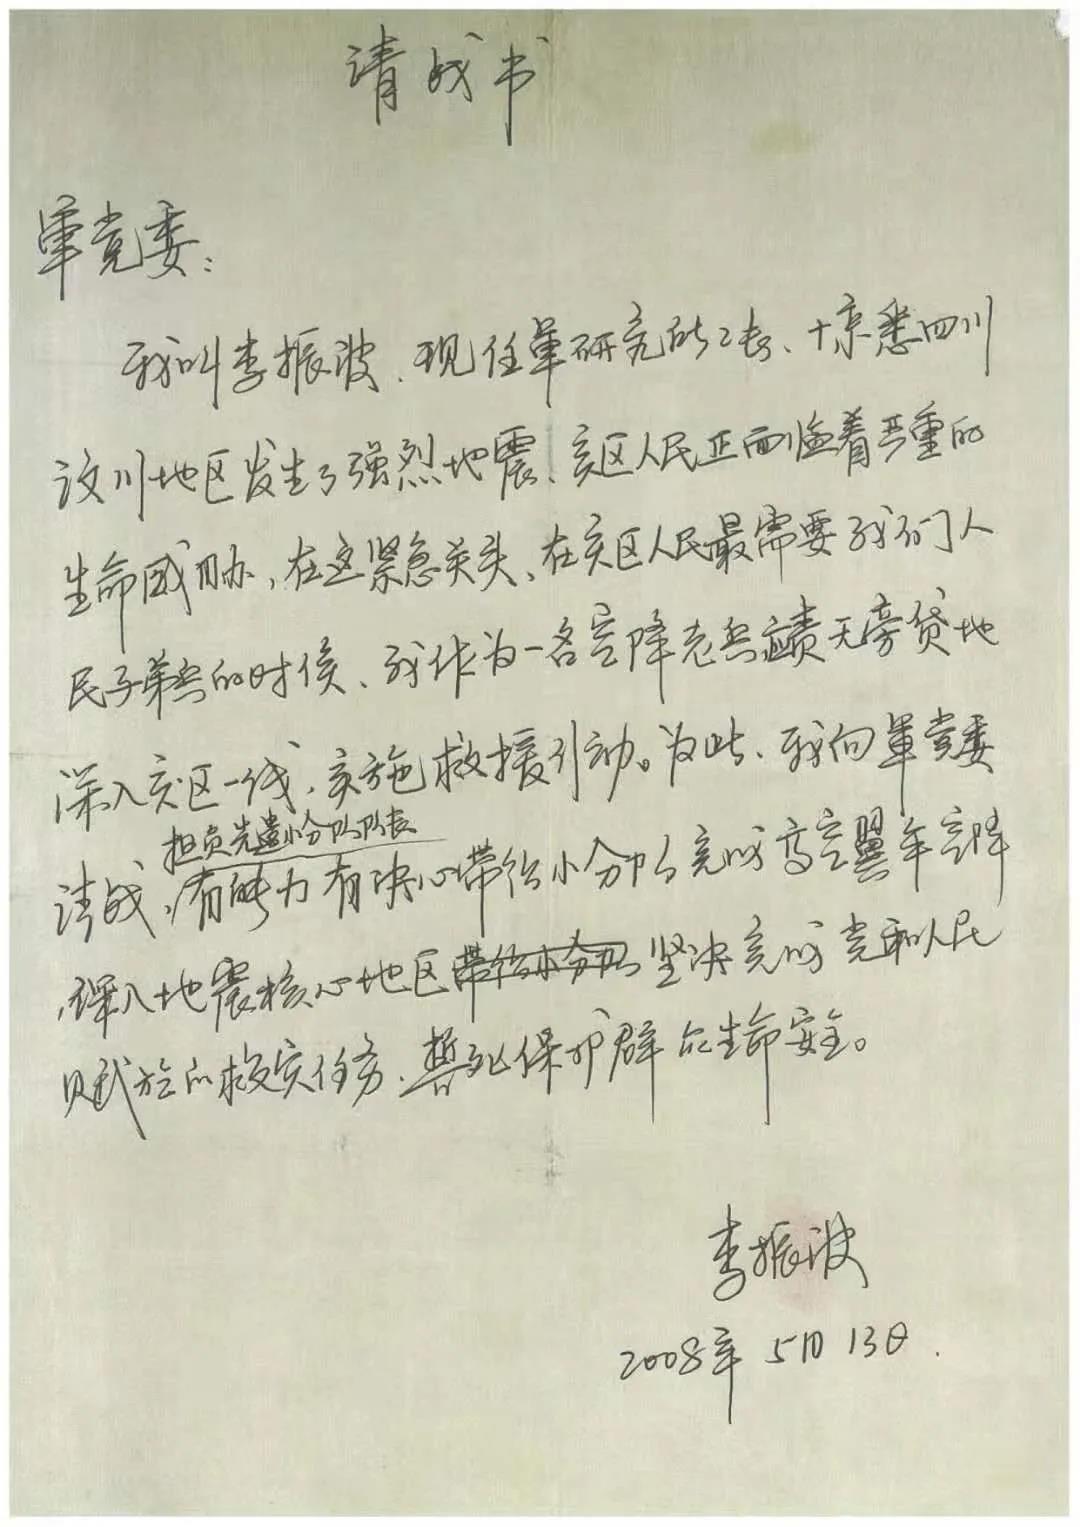 请战书
军党委：
我叫李振波、现任军研究所所长、惊悉四川
汶川地区发生了强烈地震、灾区人民正面临着严重的
生命威胁，在这紧急关头、在灾区人民最需要我们人
民子弟兵的时候、我作为一名空降老兵责无旁贷地
深入灾区一线，实施救援行动。为此、我向军党委
担负先遣小分队队长
请战，有能力有决心带领小分队完成高空翼伞空降
，深入地震核心地区带领小分队坚决完成党和人民
赋于的救灾任务，誓死保护群众生命安全。
李振波
2008年5月13日.